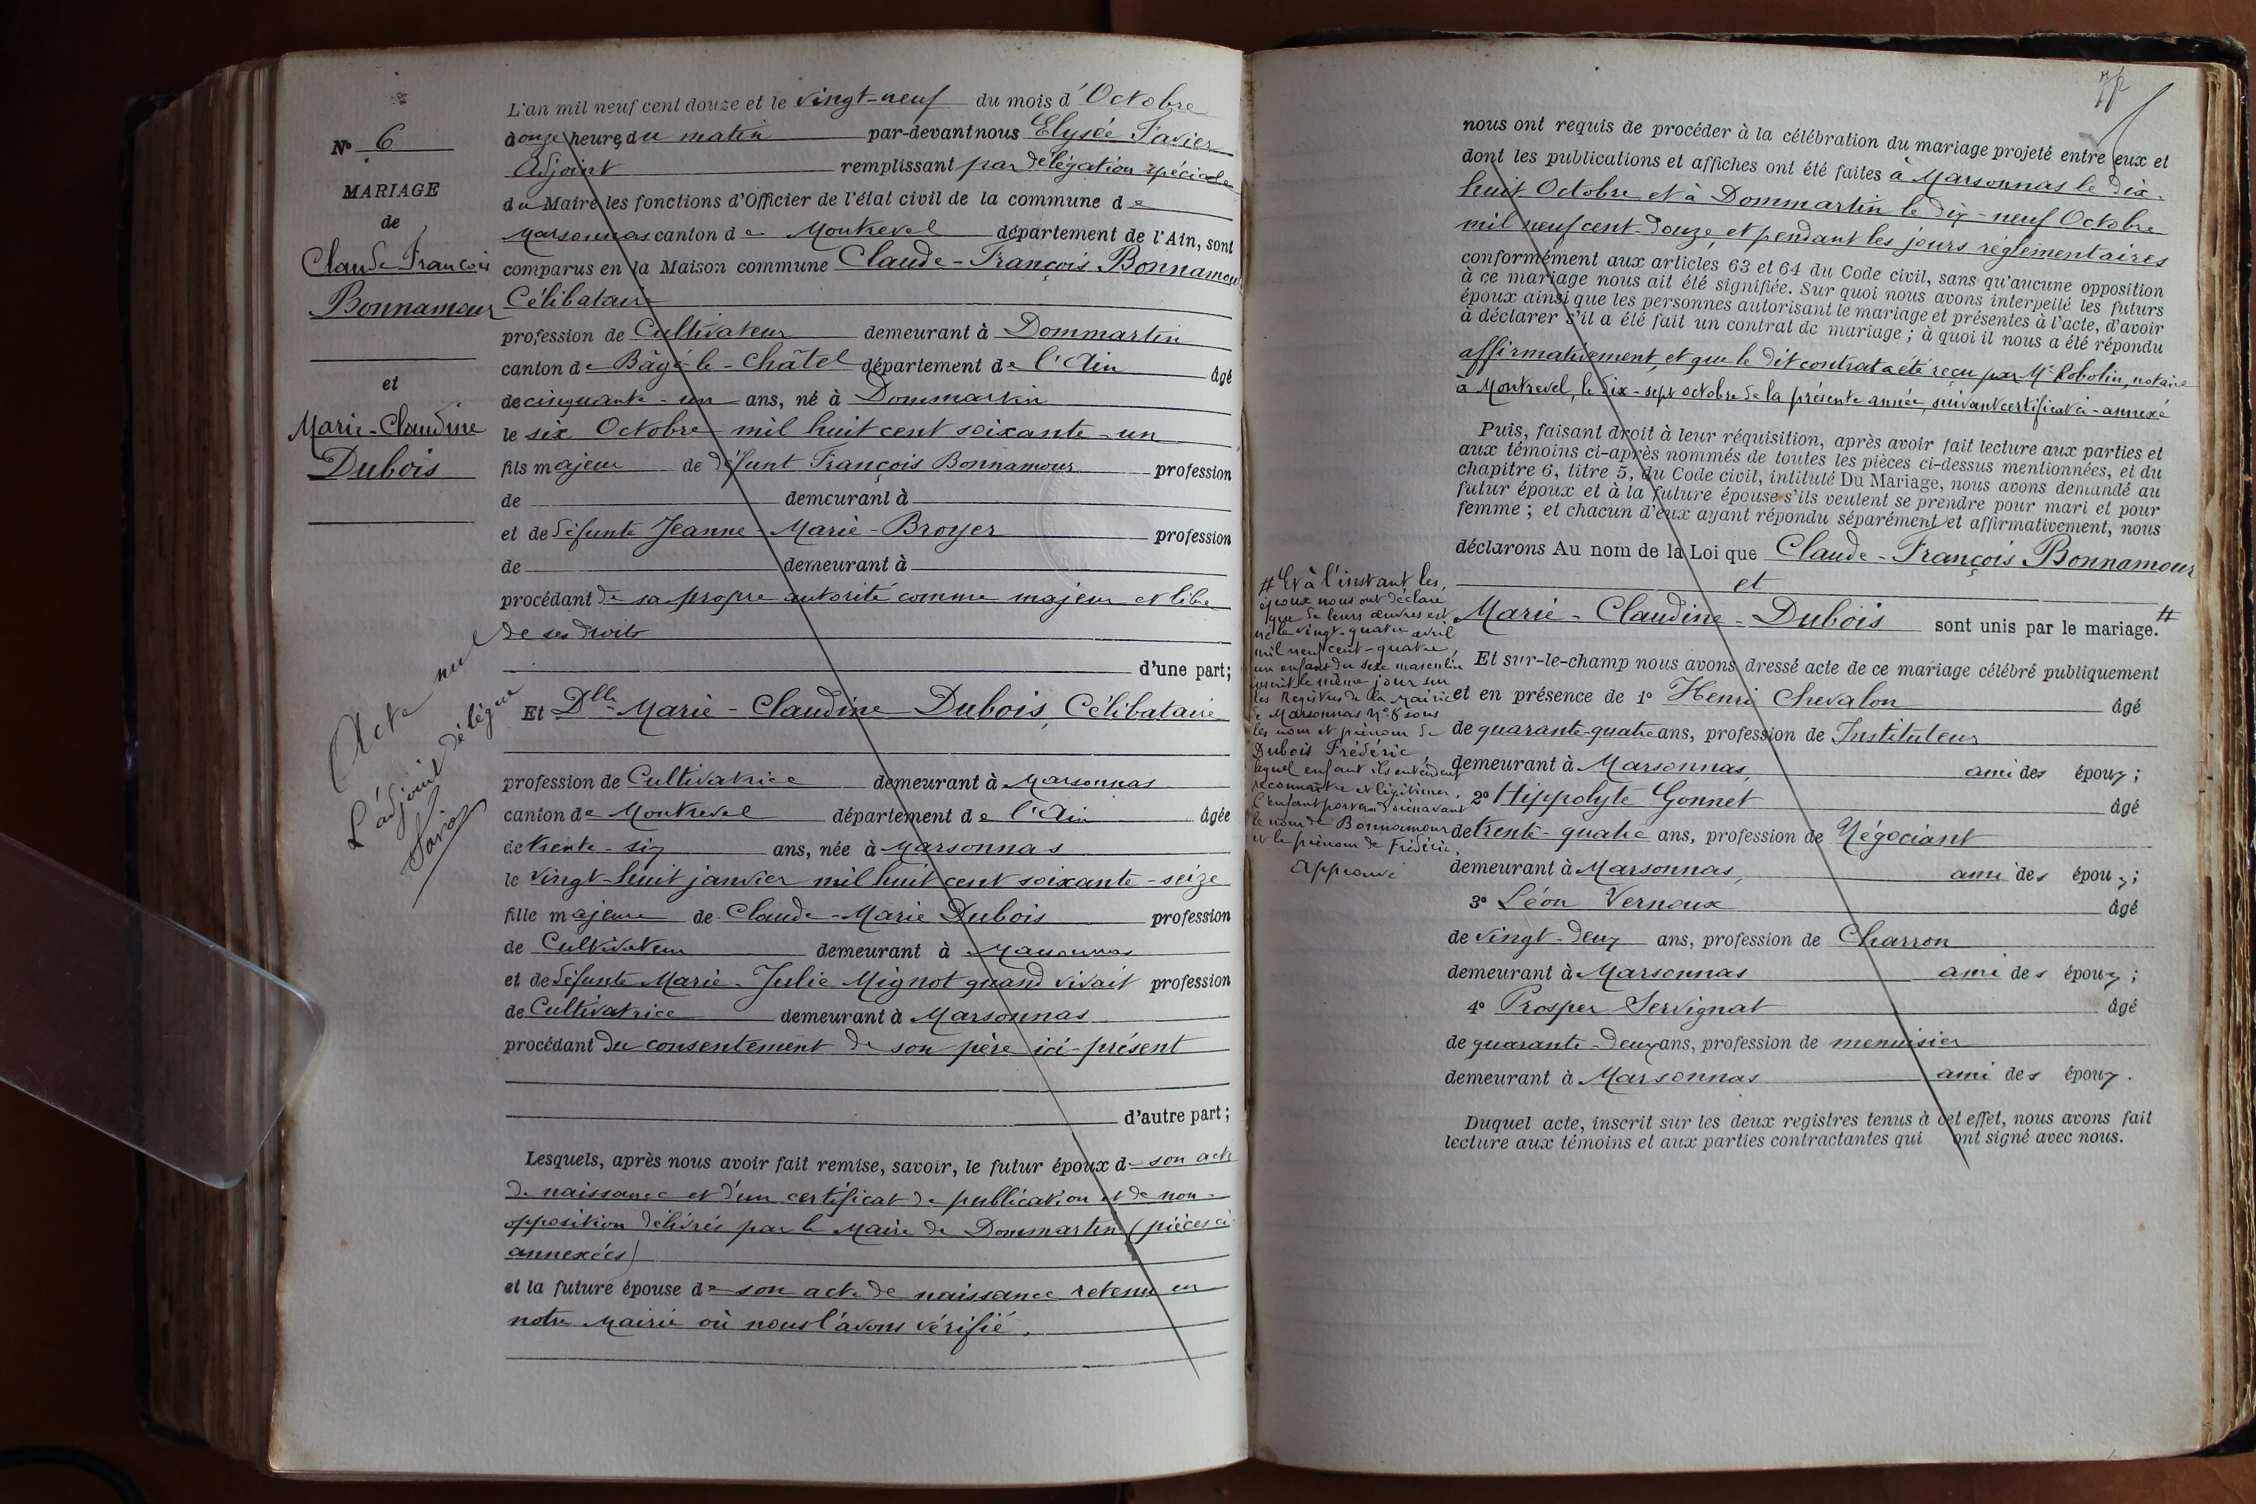 Nº 6
MARIAGE
de
Claude François
Bonnamour
et
Marie-Claudine
Dubois
Acte nul
L'adjoint délégué
Favier
L'an mil neuf cent douze et le vingt-neuf du mois d'Octobre
à onze heures du matin par-devant nous Elysée Favier
Adjoint remplissant par délégation spéciale
du Maire les fonctions d'Officier de l'état civil de la commune de
Marsonnas canton de Montrevel département de l'Ain, sont
comparus en la Maison commune Claude-François Bonnamour
Célibataire
profession de Cultivateur demeurant à Dommartin
canton de Bâgé-le-Châtel département de l'Ain âgé
de cinquante-un ans, né à Dommartin
le six Octobre mil huit cent soixante-un
fils majeur de défunt François Bonnamour profession
de demeurant à
et de défunte Jeanne-Marie-Broyer profession
de demeurant à
procédant de sa propre autorité comme majeur et libre
de ses droits
d'une part;
Et Dlle Marie-Claudine Dubois, Célibataire
profession de Cultivatrice demeurant à Marsonnas
canton de Montrevel département de l'Ain âgée
de trente-six ans, née à Marsonnas
le vingt-huit janvier mil huit cent soixante-seize
fille majeure de Claude-Marie Dubois profession
de Cultivateur demeurant à Marsonnas
et de défunte Marie-Julie Mignot quand vivait profession
de Cultivatrice demeurant à Marsonnas
procédant du consentement de son père ici-présent
d'autre part;
Lesquels, après nous avoir fait remise, savoir, le futur époux de son acte
de naissance et d'un certificat de publication et de non-
opposition délivrés par le Maire de Dommartin (pièces ci
annexées)
et la future épouse de son acte de naissance retenu en
notre Mairie où nous l'avons vérifié.
nous ont requis de procéder à la célébration du mariage projeté entre eux et
dont les publications et affiches ont été faites à Marsonnas le dix-
huit Octobre et à Dommartin le dix-neuf Octobre
mil neuf cent-douze et pendant les jours réglementaires
conformément aux articles 63 et 64 du Code civil, sans qu'aucune opposition
à ce mariage nous ait été signifiée. Sur quoi nous avons interpellé les futurs
époux ainsi que les personnes autorisant le mariage et présentes à l'acte, d'avoir
à déclarer s'il a été fait un contrat de mariage; à quoi il nous a été répondu
affirmativement, et que le dit contrat a été reçu par Me Robolin, notaire
à Montrevel, le dix-sept octobre de la présente année, suivant certificat ci-annexé
Puis, faisant droit à leur réquisition, après avoir fait lecture aux parties et
aux témoins ci-après nommés de toutes les pièces ci-dessus mentionnées, et du
chapitre 6, titre 5, du Code civil, intitulé Du Mariage, nous avons demandé au
futur époux et à la future épouse s'ils veulent se prendre pour mari et pour
femme; et chacun d'eux ayant répondu séparément et affirmativement, nous
déclarons Au nom de la Loi que Claude-François Bonnamour
et
Marie-Claudine-Dubois sont unis par le mariage. #
# Et à l'instant les
époux nous ont déclaré
que de leurs œuvres est
né le vingt-quatre avril
mil neuf cent-quatre,
un enfant du sexe masculin
inscrit le même jour sur
les Registres de la Mairie
de Marsonnas Nº 8 sous
les nom et prénom de
Dubois Frédéric
lequel enfant ils entendent
reconnaître et légitimer.
L'enfant portera dorénavant
le nom de Bonnamour
et le prénom de Frédéric.
Approuvé
Et sur-le-champ nous avons dressé acte de ce mariage célébré publiquement
et en présence de 1º Henri Chevalon âgé
de quarante-quatre ans, profession de Instituteur
demeurant à Marsonnas, ami des époux;
2º Hippolyte Gonnet âgé
de trente-quatre ans, profession de Négociant
demeurant à Marsonnas, ami des époux;
3º Léon Vernoux âgé
de vingt-deux ans, profession de Charron
demeurant à Marsonnas ami des époux;
4º Prosper Servignat âgé
de quarante-deux ans, profession de menuisier
demeurant à Marsonnas ami des époux.
Duquel acte, inscrit sur les deux registres tenus à cet effet, nous avons fait
lecture aux témoins et aux parties contractantes qui ont signé avec nous.